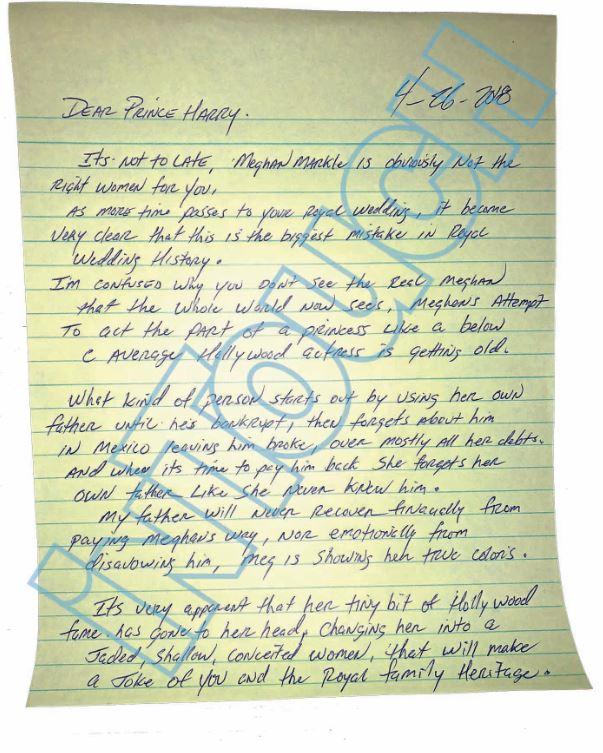 4-26-2018
DEAR PRINCE HARRY.
Its not to LATE, Meghan Markle is obviously Not the
Right women for you,
As more time passes to your Royal wedding, it became
very clear that this is the biggest mistake in Royal
Wedding History.
Im confused why you Don't see the Real Meghan
that the whole world Now sees, Meghans Attempt
To act the part of a princess Like a below
C Average Hollywood actress is getting old.
What kind of person starts out by using her own
father until he's bankrupt, then forgets about him
in Mexico leaving him broke, over mostly all her debts.
And when its time to pay him back She forgets her
own father Like She Never Knew him.
My father will Never Recover financially from
paying Meghans way, Nor emotionally from
disavowing him, Meg is Showing her true colors.
It's very apparent that her tiny bit of Hollywood
fame has gone to her head, Changing her into a
Jaded, Shallow, conceited women, that will make
a Joke of you and the Royal family Heritage.
inTouch